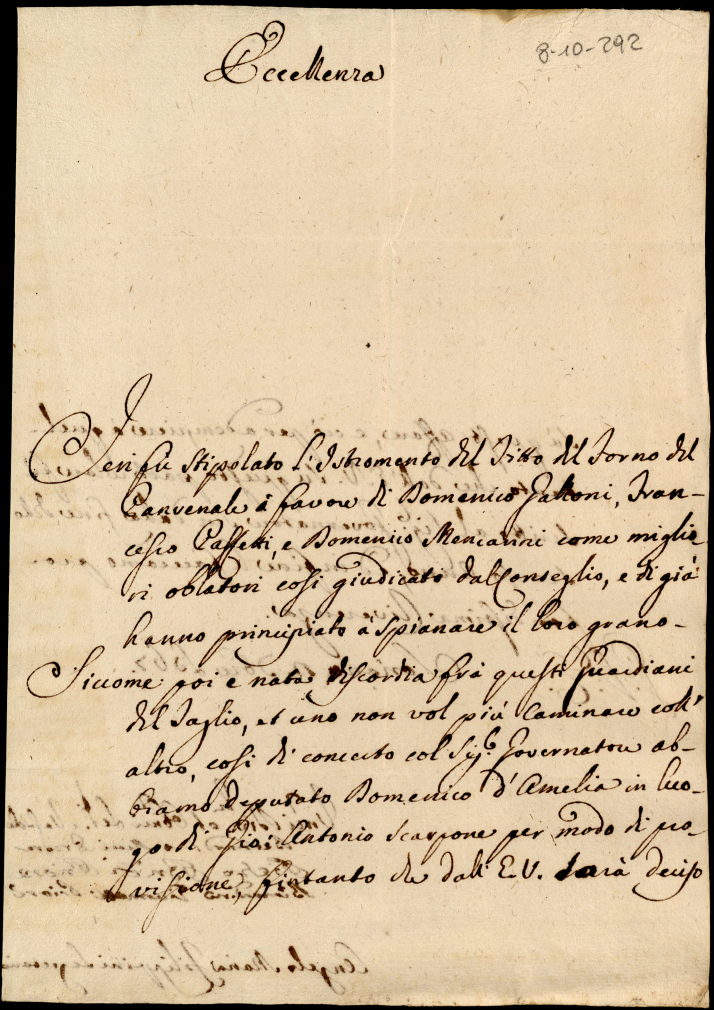 8-10-292
Eccellenza
Jeri fù stipolato l'Istromento del Fitto del Forno del
Canvenale à favore di Domenico Galloni, Fran-
cesco Caffetti, e Domenico Mencarini come miglio
ri oblatori cosi giudicati dal Conseglio, e di già
hanno principiato à spianare il loro grano-
Siccome poi e nata discordia frà questi Guardiani
del Taglio, et uno non vol più caminare coll'
altro, cosi di concerto col Sig.e Governatore ab-
biamo deputato Domenico d'Amelia in luo-
go di Gio: Antonio Scarpone per modo di pro-
visione, fintanto che dall' E.V. sarà deciso